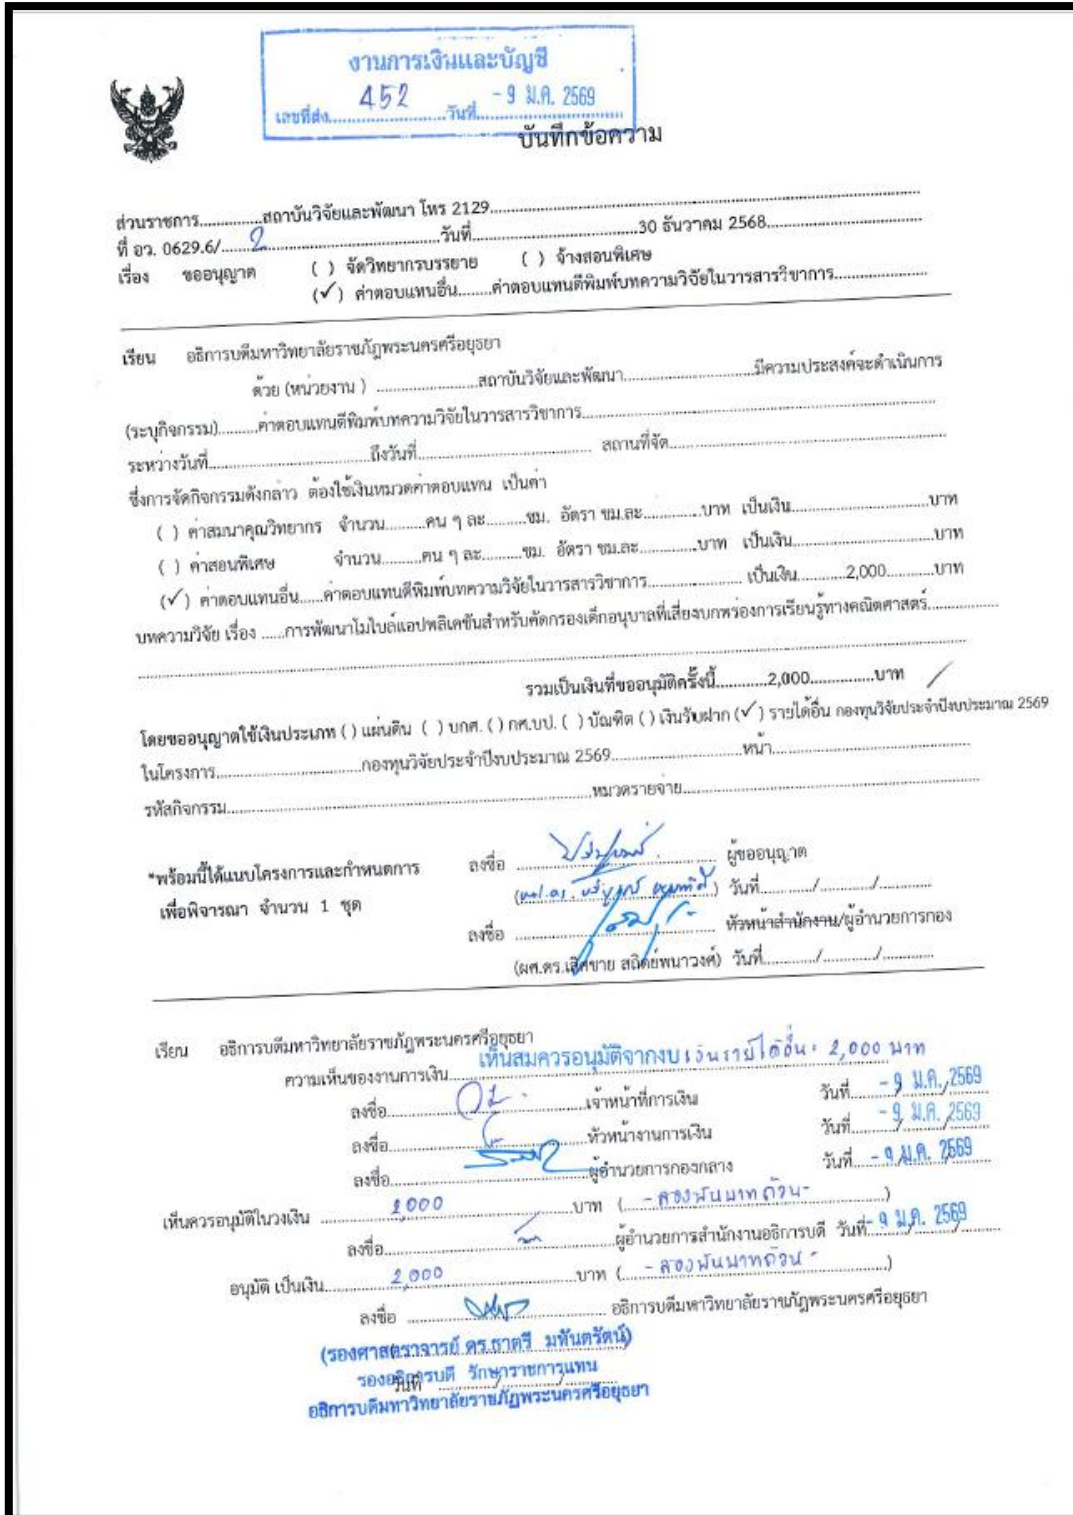 งานการเงินและบัญชี
เลขที่ส่ง.....452.....วันที่.....- 9 ม.ค. 2569
บันทึกข้อความ
ส่วนราชการ..............สถาบันวิจัยและพัฒนา โทร 2129..............
ที่ อว. 0629.6/......2......วันที่..............30 ธันวาคม 2568..............
เรื่อง ขออนุญาต ( ) จัดวิทยากรบรรยาย ( ) จ้างสอนพิเศษ
(✓) ค่าตอบแทนอื่น........ค่าตอบแทนตีพิมพ์บทความวิจัยในวารสารวิชาการ..............
เรียน อธิการบดีมหาวิทยาลัยราชภัฏพระนครศรีอยุธยา
ด้วย (หน่วยงาน ) ..............สถาบันวิจัยและพัฒนา..............มีความประสงค์จะดำเนินการ
(ระบุกิจกรรม).........ค่าตอบแทนตีพิมพ์บทความวิจัยในวารสารวิชาการ..............
ระหว่างวันที่..............ถึงวันที่.............. สถานที่จัด..............
ซึ่งการจัดกิจกรรมดังกล่าว ต้องใช้เงินหมวดค่าตอบแทน เป็นค่า
( ) ค่าสมนาคุณวิทยากร จำนวน.........คน ๆ ละ.........ชม. อัตรา ชม.ละ............บาท เป็นเงิน..............บาท
( ) ค่าสอนพิเศษ จำนวน.........คน ๆ ละ.........ชม. อัตรา ชม.ละ............บาท เป็นเงิน..............บาท
(✓) ค่าตอบแทนอื่น.....ค่าตอบแทนตีพิมพ์บทความวิจัยในวารสารวิชาการ.............. เป็นเงิน...........2,000...........บาท
บทความวิจัย เรื่อง ......การพัฒนาโมไบล์แอปพลิเคชันสำหรับคัดกรองเด็กอนุบาลที่เสี่ยงบกพร่องการเรียนรู้ทางคณิตศาสตร์..............
รวมเป็นเงินที่ขออนุมัติครั้งนี้............2,000..............บาท
โดยขออนุญาตใช้เงินประเภท ( ) แผ่นดิน ( ) บกศ. ( ) กศ.บป. ( ) บัณฑิต ( ) เงินรับฝาก (✓) รายได้อื่น กองทุนวิจัยประจำปีงบประมาณ 2569
ในโครงการ..............กองทุนวิจัยประจำปีงบประมาณ 2569..............หน้า..............
รหัสกิจกรรม..............หมวดรายจ่าย..............
ลงชื่อ .............. ผู้ขออนุญาต
*พร้อมนี้ได้แนบโครงการและกำหนดการ
วันที่............/............/............
เพื่อพิจารณา จำนวน 1 ชุด
ลงชื่อ .............. หัวหน้าสำนักงาน/ผู้อำนวยการกอง
(ผศ.ดร.เสิศชาย สถิตย์พนาวงศ์) วันที่............/............/............
เรียน อธิการบดีมหาวิทยาลัยราชภัฏพระนครศรีอยุธยา
ความเห็นของงานการเงิน.....เห็นสมควรอนุมัติจากงบ เงินรายได้อื่น: 2,000 บาท
ลงชื่อ..............เจ้าหน้าที่การเงิน วันที่.....- 9 ม.ค. 2569
ลงชื่อ..............หัวหน้างานการเงิน วันที่.....- 9 ม.ค. 2569
ลงชื่อ..............ผู้อำนวยการกองกลาง วันที่.....- 9 ม.ค. 2569
เห็นควรอนุมัติในวงเงิน ......2,000......บาท (......- สองพันบาทถ้วน -......)
ลงชื่อ..............ผู้อำนวยการสำนักงานอธิการบดี วันที่.....- 9 ม.ค. 2569
อนุมัติ เป็นเงิน......2,000......บาท (......- สองพันบาทถ้วน -......)
ลงชื่อ .............. อธิการบดีมหาวิทยาลัยราชภัฏพระนครศรีอยุธยา
(รองศาสตราจารย์ ดร.ธาตรี มหันตรัตน์)
รองอธิการบดี รักษาราชการแทน
วันที่ ............/............/............
อธิการบดีมหาวิทยาลัยราชภัฏพระนครศรีอยุธยา